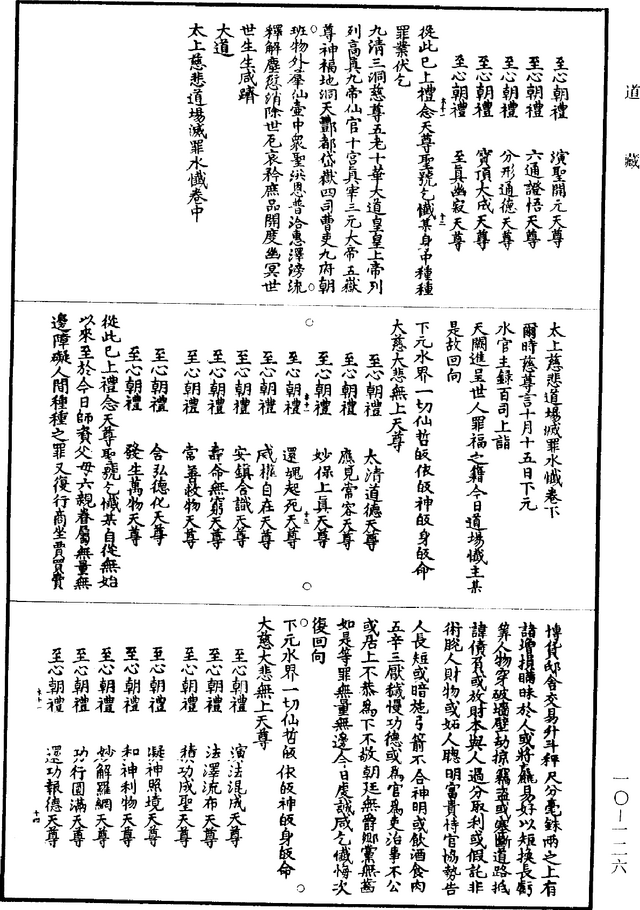 道藏
至心朝禮　演聖開元天尊
至心朝禮　六通證悟天尊
至心朝禮　分形通德天尊
至心朝禮　寶頂大成天尊
至心朝禮　至真幽寂天尊
從此已上禮念天尊聖號乞懺某身中種種
罪業伏乞
九清三洞慈尊五老十華大道皇皇上帝列
列高真九帝仙官十宮真宰三元大帝五嶽
尊神福地洞天酆都岱嶽四司曹吏九府朝
班物外羣仙壺中衆聖洪恩普洽惠澤滂流
釋解塵愆消除世厄哀矜庶品開度幽冥世
世生生咸躋
大道
太上慈悲道場滅罪水懺卷中
太上慈悲道場滅罪水懺卷下
爾時慈尊言十月十五日下元
水官主錄百司上詣
天闕進呈世人罪福之籍今日道場懺主某
是故回向
下元水界一切仙哲皈依皈神皈身皈命
大慈大悲無上天尊
至心朝禮　太清道德天尊
至心朝禮　應見常容天尊
至心朝禮　妙保上真天尊
至心朝禮　還魂起死天尊
至心朝禮　威權自在天尊
至心朝禮　安鎮合識天尊
至心朝禮　壽命無窮天尊
至心朝禮　常善救物天尊
至心朝禮　含弘德化天尊
至心朝禮　發生萬物天尊
從此已上禮念天尊聖號乞懺某自從無始
以來至於今日師資父母六親眷屬無量無
邊障礙人間種種之罪又復行商坐賈買賣
博貨邸舍交易升斗秤尺分毫銖兩之上有
諸增損瞞昧於人或將麄易好以短換長虧
筭人物穿破墻壁劫掠竊盜或塞斷道路抵
諱債負或放財本與人過分取利或假託非
術脫人財物或妬人聰明富貴恃官協勢告
人長短或暗施弓箭不合神明或飲酒食肉
五辛三厭穢慢功德或為官為吏治事不公
或居上不恭為下不敬朝廷無爵鄉黨無齒
如是等罪無量無邊今日虔誠咸乞懺悔次
復回向
下元水界一切仙哲皈依皈神皈身皈命
大慈大悲無上天尊
至心朝禮　演法混成天尊
至心朝禮　法澤流布天尊
至心朝禮　積功成聖天尊
至心朝禮　凝神照境天尊
至心朝禮　和神利物天尊
至心朝禮　妙解羅網天尊
至心朝禮　功行圓滿天尊
至心朝禮　還功報德天尊
一〇—一二六